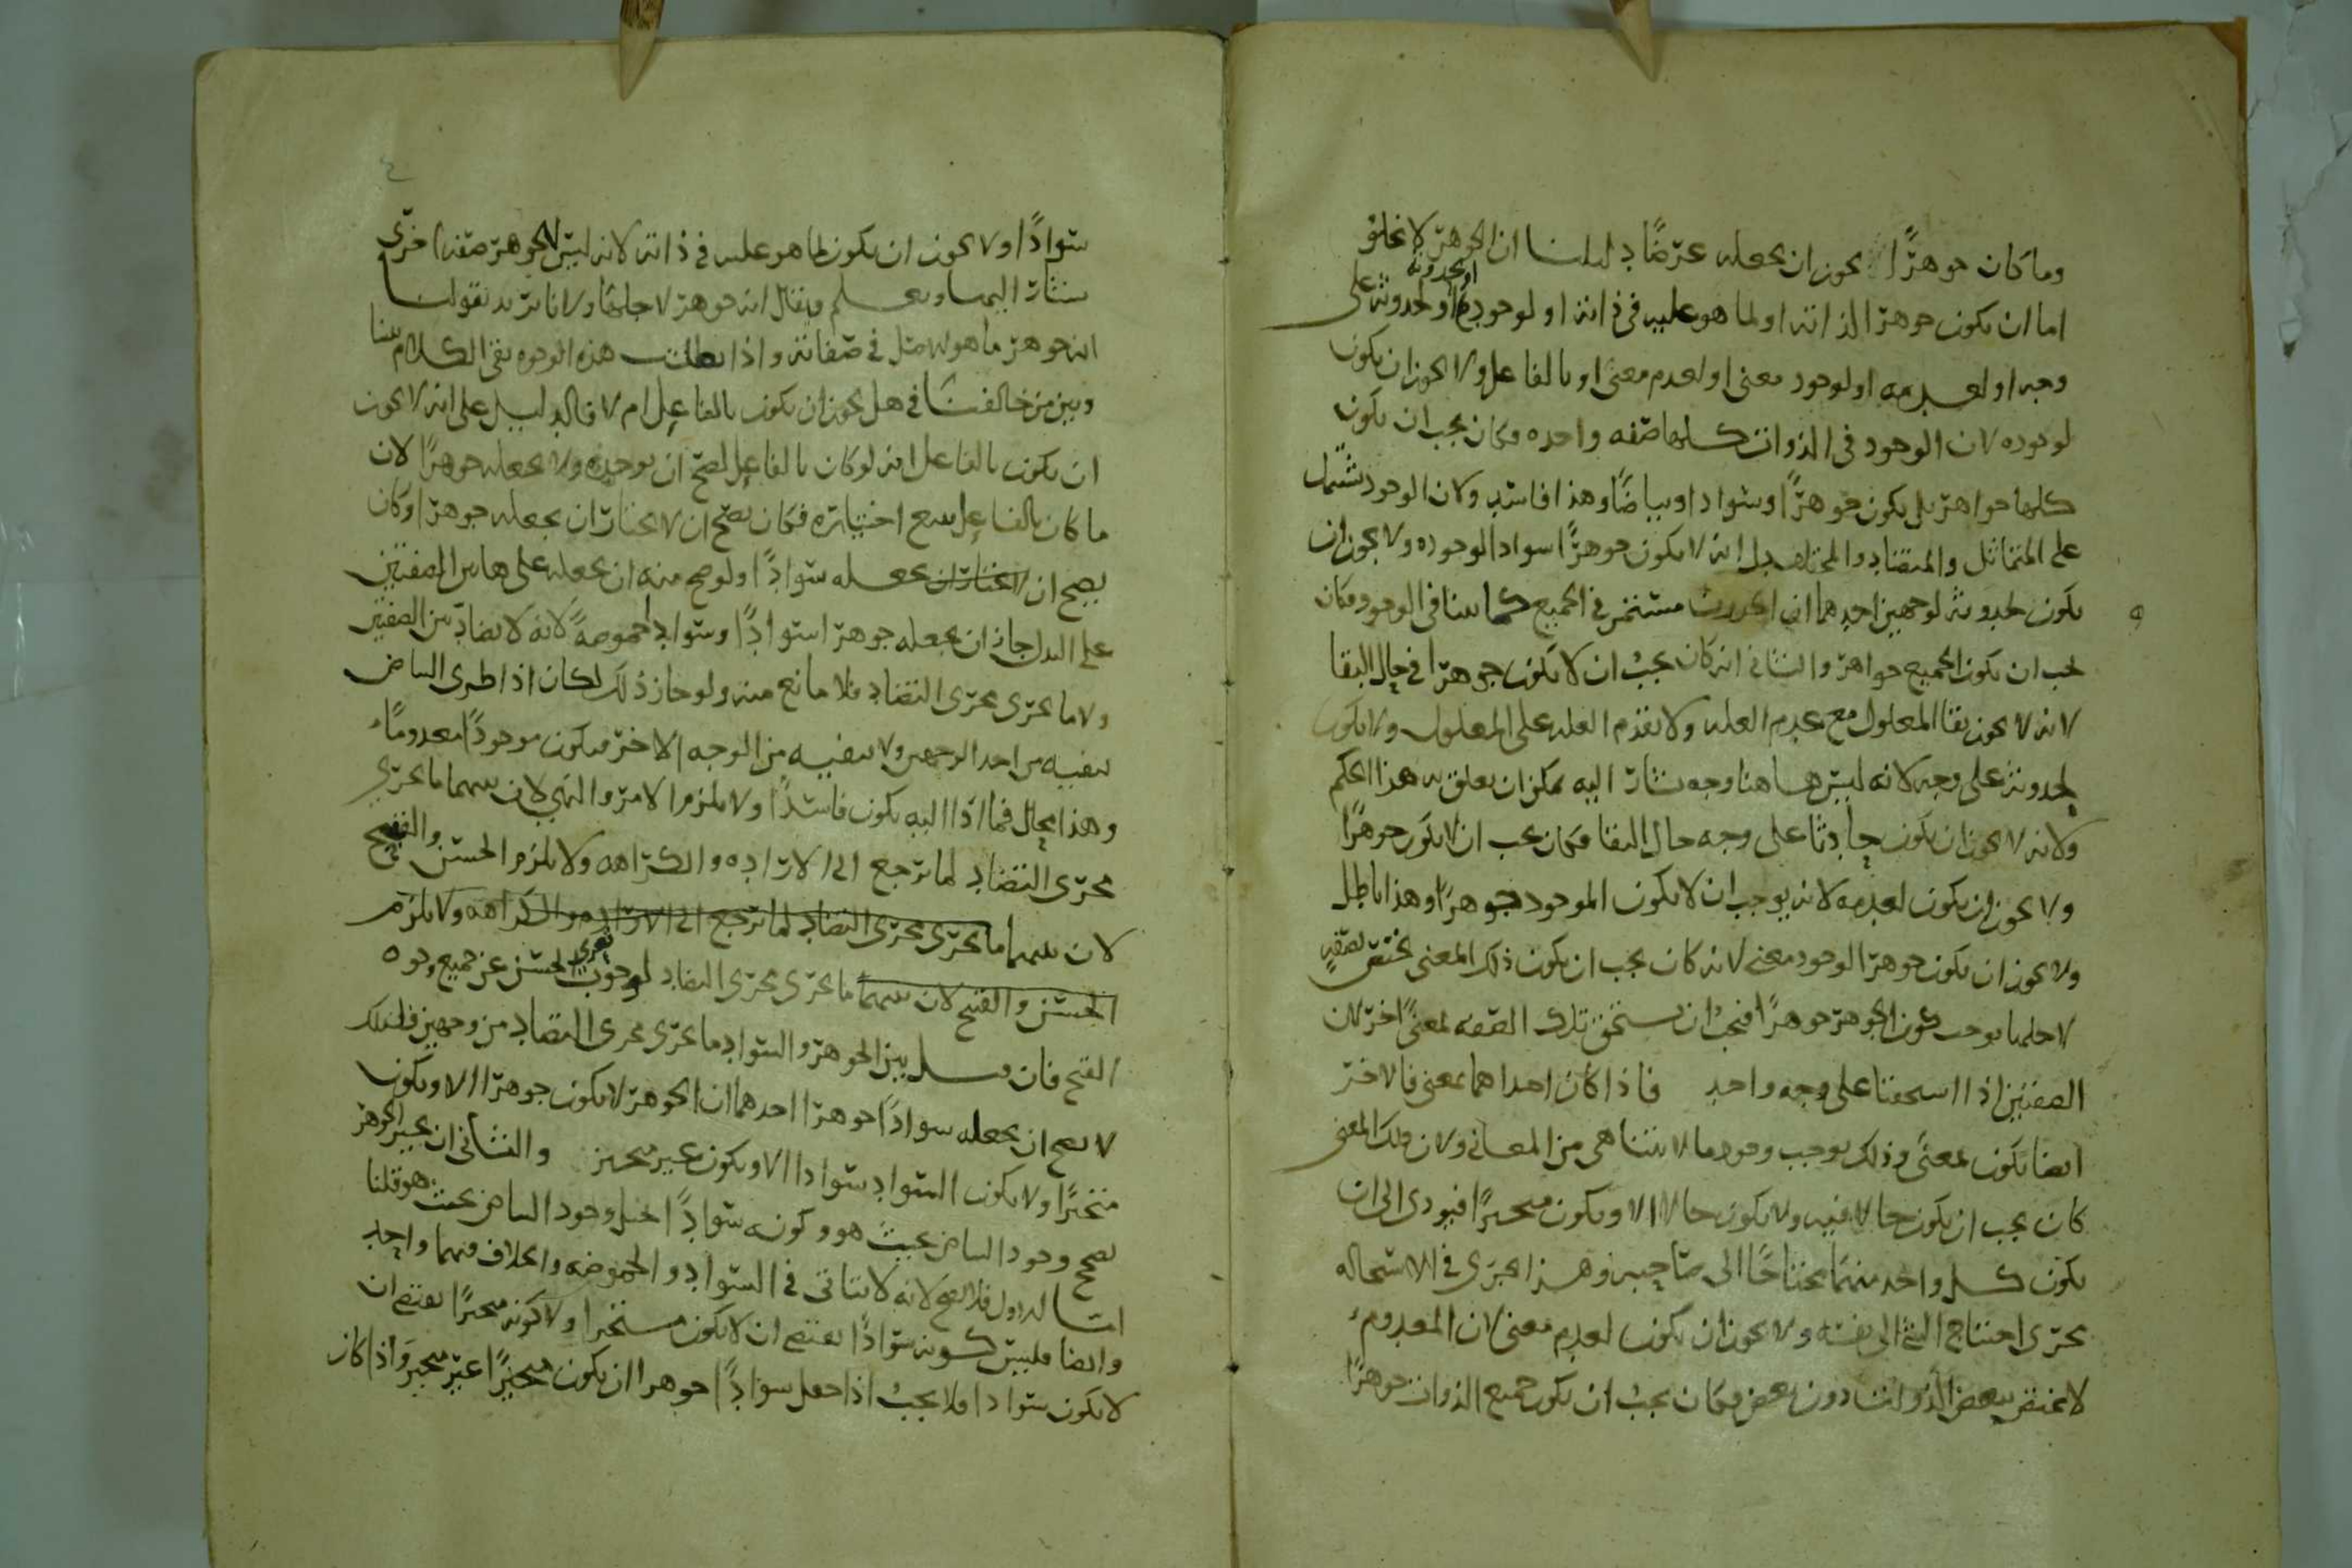 وما كان جوهرًا يجوز ان يجعله عرضًا دليلنا ان الجوهر لا يخلو
اما ان يكون جوهرا لذاته او لما هو عليه في ذاته او لوجوده او لحدوثه على
وجه او لعدمه او لوجود معنى او لعدم معنى او بالفاعل ولا يجوز ان يكون
لوجوده لان الوجود في الذوات كلها صفه واحده فكان يجب ان يكون
كلها جواهر بل يكون جوهرًا وسوادا وبياضًا وهذا فاسد ولان الوجود يشتمل
على المتماثل والمتضاد والمختلف بل انه لا يكون جوهرًا سوادا لوجوده ولا يجوز ان
يكون لحدوثه لوجهين احدهما ان الحدوث مستمر في الجميع كما بينا في الوجود فكان
يجب ان يكون الجميع جواهر والثاني انه كان يجب ان لا يكون جوهرا في حال البقا
لانه لا يجوز بقا المعلول مع عدم العله ولا تقدم العله على المعلول ولا يكون
لحدوثه على وجه لانه ليس هاهنا وجه يشار اليه يمكن ان يعلق به هذا الحكم
ولانه لا يجوز ان يكون حادثًا على وجه حال البقا فكان يجب ان لا يكون جوهرًا
ولا يجوز ان يكون لعدمه لانه يوجب ان لا يكون الموجود جوهرًا وهذا باطل
ولا يجوز ان يكون جوهرا لوجود معنى لانه كان يجب ان يكون ذلك المعنى يختص بصفه
لاجلها يوجب كون الجوهر جوهرًا فيجب ان يستحق تلك الصفه لمعنىً اخر لان
الصفتين اذا استحقتا على وجه واحد فاذا كان احداهما لمعنى فالاخر
ايضا يكون لمعنىً وذلك يوجب وجود ما لا يتناهى من المعاني ولان ذلك المعنى
كان يجب ان يكون حالا فيه ولا يكون حالا الا ويكون متحيزًا فيودي الى ان
يكون كل واحد منهما محتاجًا الى صاحبه وهذا يجري في الاستحاله
مجرى احتياج الشي الى نفسه ولا يجوز ان يكون لعدم معنى لان المعدوم
لا يختص ببعض الذوات دون بعض فكان يجب ان يكون جميع الذوات جوهرًا
سوادًا ولا يجوز ان يكون لما هو عليه في ذاته لانه ليس للجوهر صفه اخرى
يشار اليها ويعلم ويقال انه جوهر لاجلها وانا نريد بقولنا
انه جوهر ما هو له مثل في صفاته واذا بطلت هذه الوجوه بقي الكلام بيننا
وبين من خالفنا في هل يجوز ان يكون بالفاعل ام لا فالدليل على انه لا يجوز
ان يكون بالفاعل انه لو كان بالفاعل لصح ان يوجده ولا يجعله جوهرًا لان
ما كان بالفاعل يتبع اختياره فكان يصح ان لا يختار ان يجعله جوهرا وكان
يصح ان يختار ان يجعله سوادًا ولو صح منه ان يجعله على هاتين الصفتين
على البدل جاز ان يجعله جوهرا سوادًا وسوادا حموضهً لانه لا تضاد بين الصفتين
ولا ما يجري مجرى التضاد فلا مانع منه ولو جاز ذلك لكان اذا طرى البياض
ينفيه من احد الوجهين ولا ينفيه من الوجه الاخر فيكون موجودًا معدومًا
وهذا محال فما ادا اليه يكون فاسدًا ولا يلزم الامر والنهي لان بينهما ما يجري
مجرى التضاد لما نرجع الى الاراده والكراهه ولا يلزم الحسن والقبيح
لان بينهما ما يجري مجرى التضاد لما نرجع الى الاراده والكراهه ولا يلزم
الحسن والقبح لان بينهما ما يجري مجرى التضاد لوجوب تعري الحسن عن جميع وجوه
القبح فان قيل بين الجوهر والسواد ما يجري مجرى التضاد من وجهين فلذلك
لا يصح ان يجعله سوادًا جوهرا احدهما ان الجوهر لا يكون جوهرا الا ويكون
متحيزًا ولا يكون السواد سوادا الا ويكون غير متحيز والثاني ان تحيز الجوهر
يصحح وجود البياض بحيث هو وكونه سوادًا يحيل وجود البياض بحيث هو قلنا
اما الاول فلا يصح لانه لا يتاتى في السواد والحموضه والخلاف فيهما واحد
وايضا فليس كونه سوادًا يقتضي ان لا يكون متحيزا ولا كونه متحيزًا يقتضي ان
لا يكون سوادا فلا يجب اذا جعل سوادًا جوهرا ان يكون متحيزًا غير متحيز واذا كان